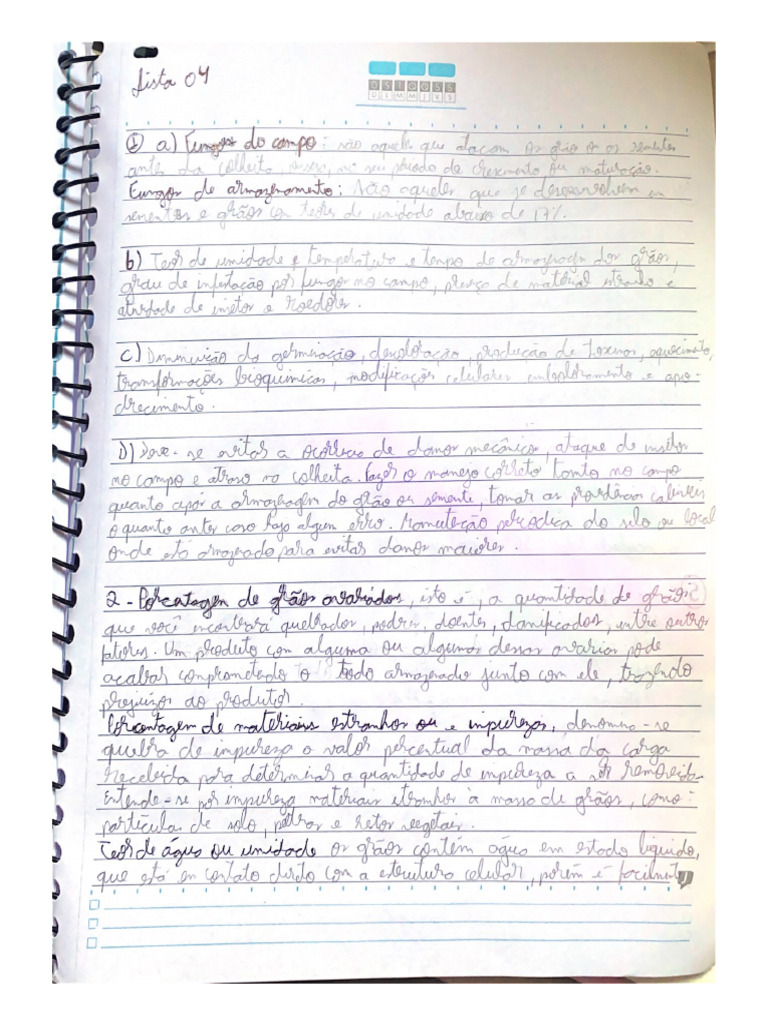 Lista 04
D S T Q Q S S
D L M M J V S
① a) Fungos do campo: são aqueles que atacam os grãos ou as sementes
antes da colheita, ou seja, no seu período de crescimento ou maturação.
Fungos de armazenamento: São aqueles que se desenvolvem em
sementes e grãos com teores de umidade abaixo de 17%.
b) Teor de umidade e temperatura e tempo de armazenagem dos grãos,
grau de infestação por fungos no campo, presença de material estranho e
atividade de insetos e roedores.
c) Diminuição da germinação, descoloração, produção de toxinas, aquecimento,
transformações bioquímicas, modificações celulares emboloramento e apo-
drecimento.
D) Deve-se evitar a ocorrência de danos mecânicos, ataque de insetos
no campo e atraso na colheita. Fazer o manejo correto tanto no campo
quanto após a armazenagem do grão ou semente, tomar as providências cabíveis
o quanto antes caso haja algum erro. Manutenção periódica do silo ou local
onde está armazenado para evitar danos maiores.
2 - Porcentagem de grãos avariados, isto é, a quantidade de grãos
que você encontrará quebrados, podres, doentes, danificados, entre outros
fatores. Um produto com alguma ou algumas dessas avarias pode
acabar comprometendo o todo armazenado junto com ele, trazendo
prejuízos ao produtor.
Porcentagem de materiais estranhos ou e impurezas, denomina-se
quebra de impureza o valor percentual da massa da carga
recebida para determinar a quantidade de impureza a ser removida.
Entende-se por impureza materiais estranhos à massa de grãos, como:
partículas de solo, pedras e restos vegetais.
Teor de água ou umidade os grãos contém água em estado líquido,
que está em contato direto com a estrutura celular, porém é facilmente